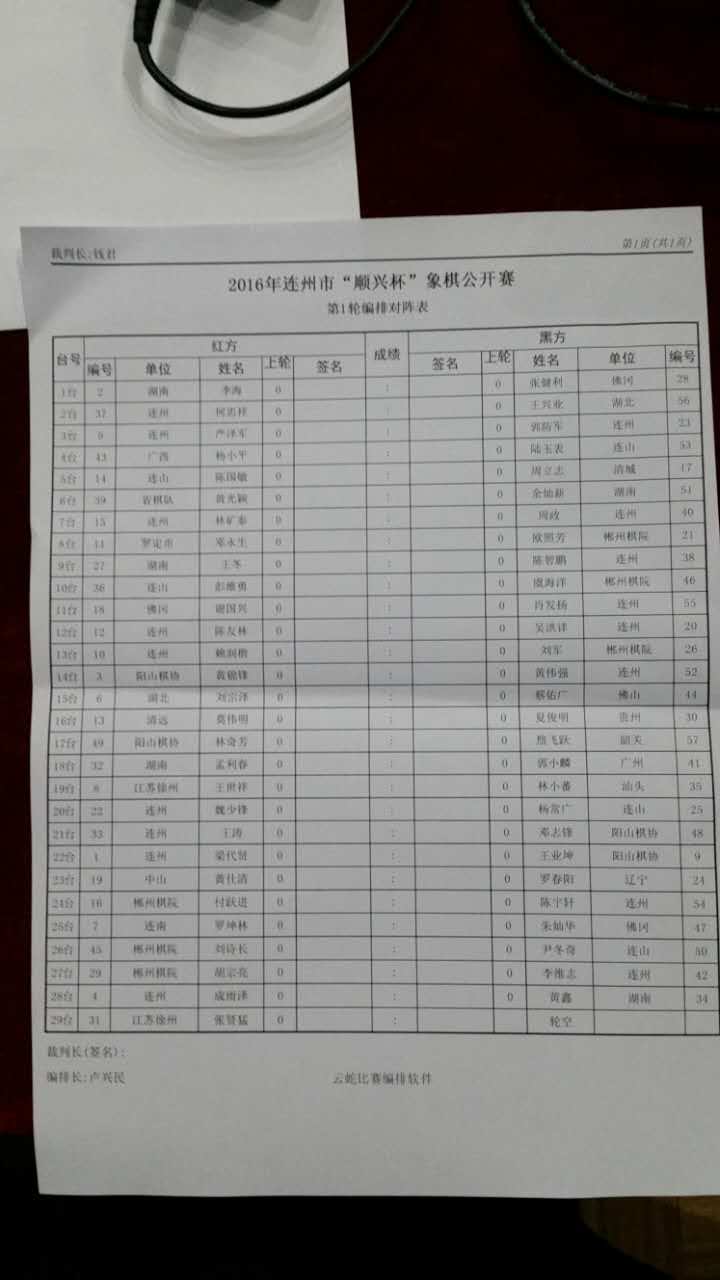 裁判长:钱君 第1页(共1页)
2016年连州市“顺兴杯”象棋公开赛
第1轮编排对阵表
台号 红方 成绩 黑方
编号 单位 姓名 上轮 签名 签名 上轮 姓名 单位 编号
1台 2 湖南 李海 0 : 0 张健利 佛冈 28
2台 37 连州 何忠祥 0 : 0 王兴业 湖北 56
3台 5 连州 严泽军 0 : 0 郭防军 连州 23
4台 43 广西 杨小平 0 : 0 陆玉表 连山 53
5台 14 连山 陈国敏 0 : 0 周立志 清城 17
6台 39 省棋队 黄光颖 0 : 0 余灿新 湖南 51
7台 15 连州 林矿泰 0 : 0 周政 连州 40
8台 11 罗定市 邓永生 0 : 0 欧照芳 郴州棋院 21
9台 27 湖南 王冬 0 : 0 陈智鹏 连州 38
10台 36 连山 彭维勇 0 : 0 虞海洋 郴州棋院 46
11台 18 佛冈 谢国兴 0 : 0 肖发扬 连州 55
12台 12 连州 陈友林 0 : 0 吴洪详 连州 20
13台 10 连州 赖润楷 0 : 0 刘军 郴州棋院 26
14台 3 阳山棋协 黄锦锋 0 : 0 黄伟强 连州 52
15台 6 湖北 刘宗泽 0 : 0 蔡佑广 佛山 44
16台 13 清远 莫伟明 0 : 0 夏俊明 贵州 30
17台 49 阳山棋协 林奇芳 0 : 0 敖飞跃 韶关 57
18台 32 湖南 孟利春 0 : 0 郭小麟 广州 41
19台 8 江苏徐州 王世祥 0 : 0 林小蕃 汕头 35
20台 22 连州 魏少锋 0 : 0 杨常广 连山 25
21台 33 连州 王涛 0 : 0 邓志锋 阳山棋协 48
22台 1 连州 梁代贤 0 : 0 王业坤 阳山棋协 9
23台 19 中山 黄仕清 0 : 0 罗春阳 辽宁 24
24台 16 郴州棋院 付跃进 0 : 0 陈宇轩 连州 54
25台 7 连南 罗坤林 0 : 0 朱灿华 佛冈 47
26台 45 郴州棋院 刘诗长 0 : 0 尹冬奇 连山 50
27台 29 郴州棋院 胡宗亮 0 : 0 李维志 连州 42
28台 4 连州 成雨泽 0 : 0 黄鑫 湖南 34
29台 31 江苏徐州 张贤猛 0 : 轮空
裁判长(签名):
编排长:卢兴民 云蛇比赛编排软件